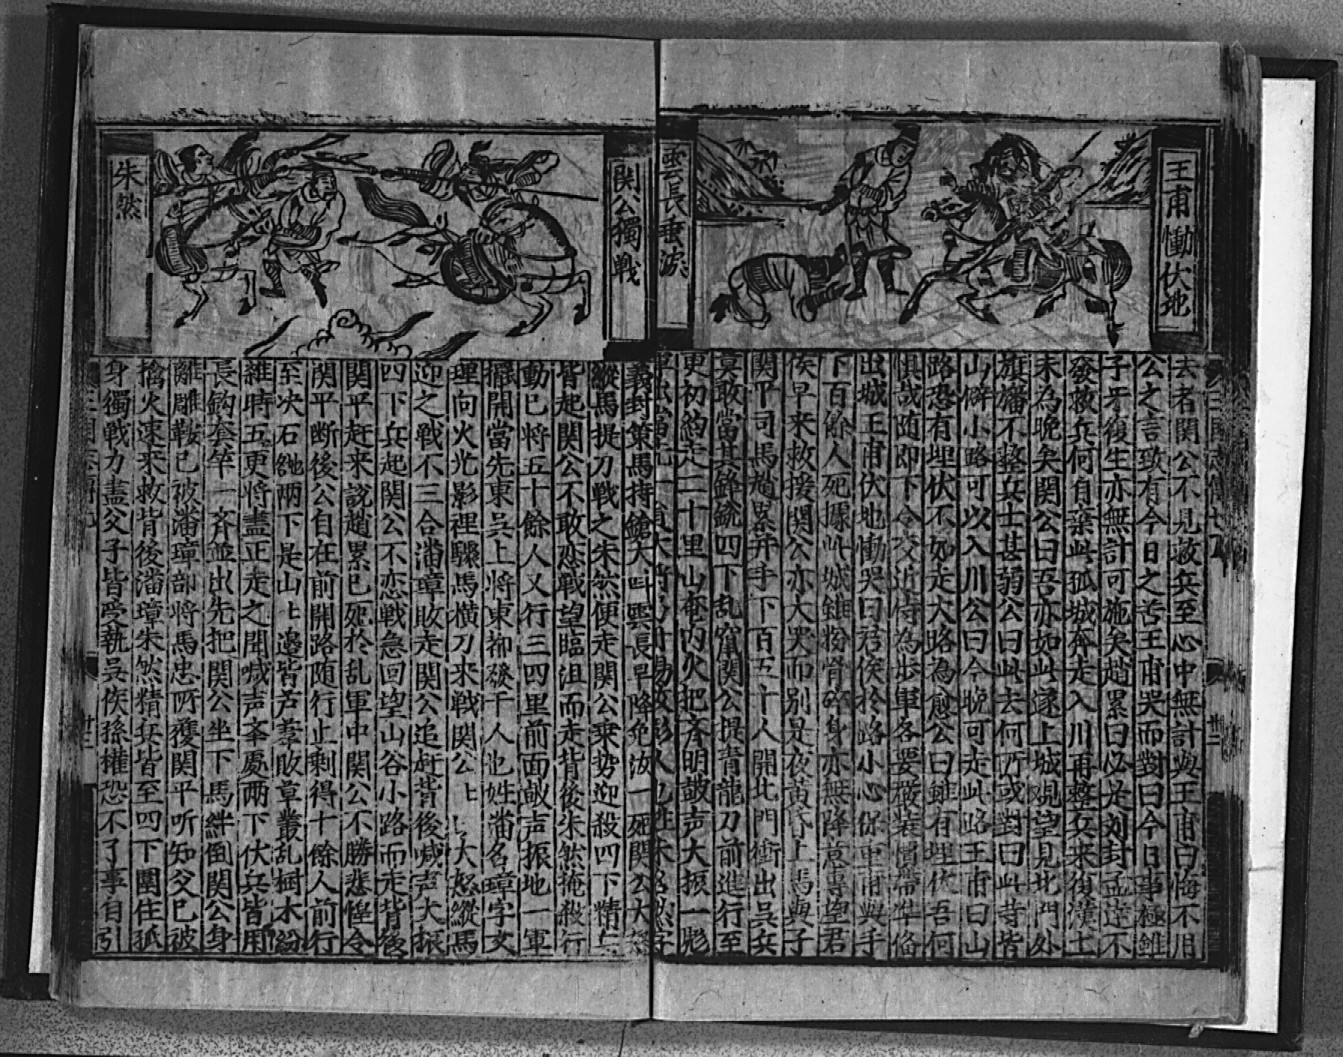 王甫慟伏地
雲長垂淚
去者関公不見救兵至心中無計與王甫曰悔不用
公之言致有今日之苦王甫哭而對曰今日事極雖
子牙復生亦無計可施矣趙累曰必是刘封孟逹不
發救兵何自棄此孤城奔走入川再整兵来復漢土
未為晚矣関公曰吾亦如此遂上城覌望見北門外
旗旛不整兵士甚弱公曰此去何乃或對曰此寺皆
山僻小路可以入川公曰今晚可走此路王甫曰山
路恐有埋伏不如走大路為愈公曰雖有埋伏吾何
惧哉随即下令交近侍為步軍各要嚴装慣帶凖俻
出城王甫伏地慟哭曰君侯於路小心保重甫與手
下百餘人死據此城雖粉骨碎身亦無降意專望君
侯早来救援関公亦大哭而别是夜黄昏上馬與子
関平司馬趙累并手下百五十人開北門衝出吳兵
莫敢當其鋒銃四下乱竄関公提青龍刀前進行至
更初約走二十里山奄内火把齐明皷声大振一彪
関公獨戦
朱然
義封策馬持鎗大呌雲長早降免汝一死関公大怒
縱馬提刀戦之朱然便走関公乗势迎殺四下精兵
皆起関公不敢恋戦望臨沮而走背後朱然掩殺行
動已將五十餘人又行三四里前面皷声振地一軍
擺開當先東吳上將東郡發干人也姓潘名璋字文
理向火光影裡驟馬横刀来戦関公大怒縱馬
迎之戦不三合潘璋敗走関公追赶背後喊声大振
四下兵起関公不恋戦急回望山谷小路而走背後
関平赶来說趙累已死於乱軍中関公不勝悲惶令
関平断後公自在前開路随行止剩得十餘人前行
至决石兩下是山山邉皆芦葦敗草叢乱樹木紛
雜時五更將盡正走之間喊声齐處兩下伏兵皆用
長鈎套竿一齐並出先把関公坐下馬絆倒関公身
離雕鞍已被潘璋部將馬忠所獲関平听知父已被
擒火速来救背後潘璋朱然精兵皆至四下圍住孤
身獨戦力盡父子皆受執吳侯孫權恐不了事自引